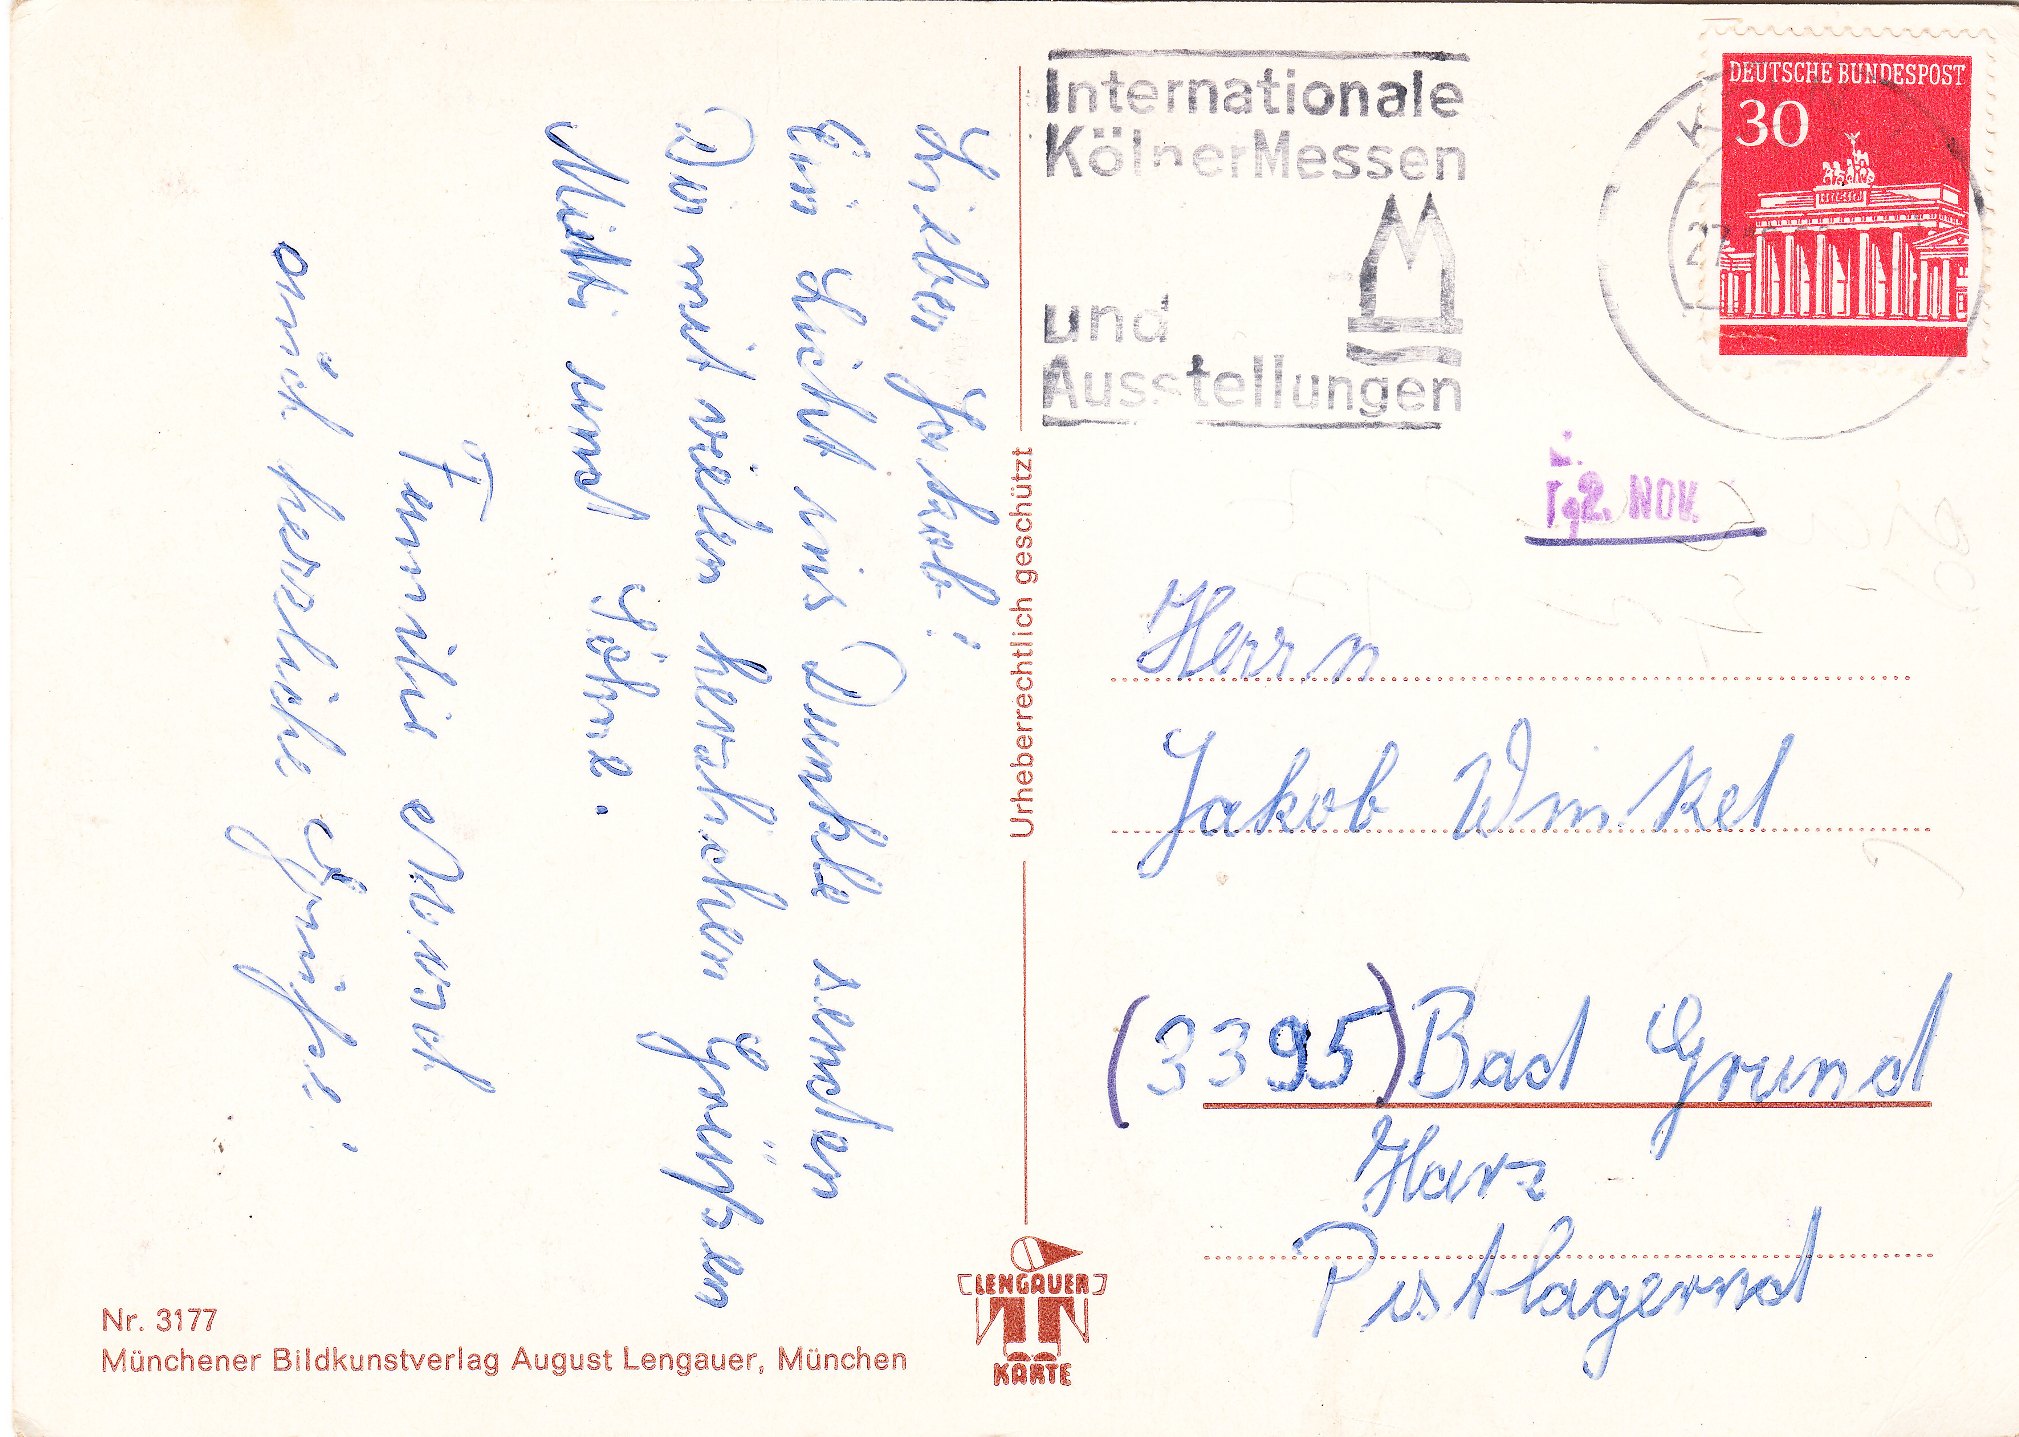 Lieber Jakob!
Ein Licht ins Dunkle senden
Dir mit vielen herzlichen Grüßen
Mutti und Söhne.
Familie
auch herzliche Grüße!
Internationale
KölnerMessen
und
Ausstellungen
DEUTSCHE BUNDESPOST
30
27
2. NOV.
Urheberrechtlich geschützt
Herrn
Jakob Winkel
(3395) Bad Grund
Harz
Postlagernd
Nr. 3177
Münchener Bildkunstverlag August Lengauer, München
LENGAUER
KARTE